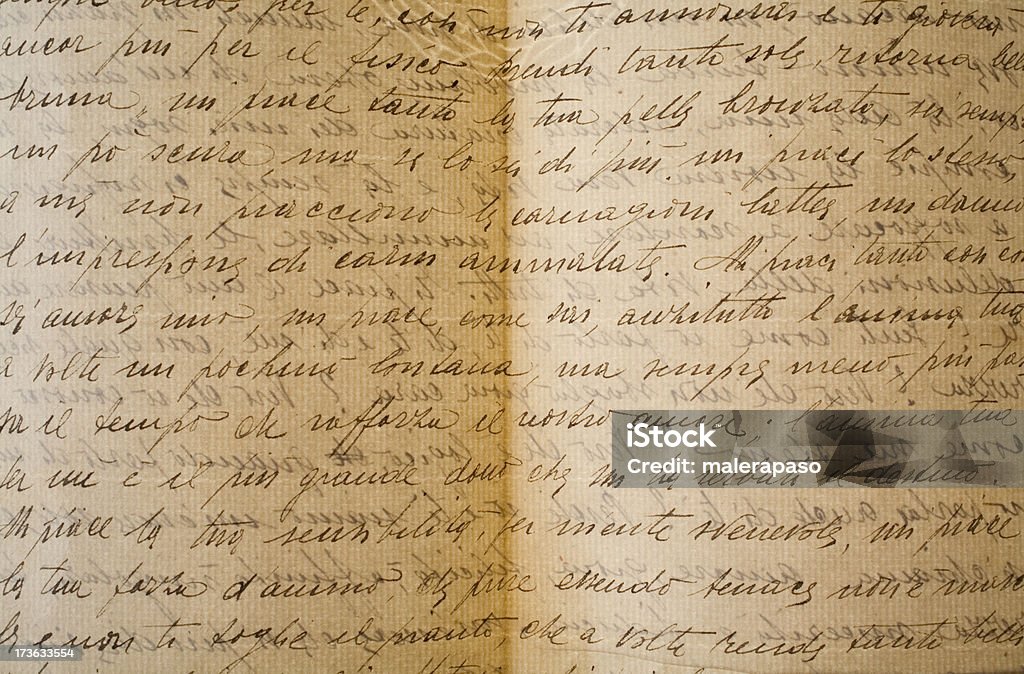 per te, così non ti ammalerai e ti gioverà
ancor più per il fisico, prendi tanto sole, ritorna bel
bruna, mi piace tanto la tua pelle bronzata, sei sempre
un po' scura ma se lo sei di più mi piaci lo stesso,
a me non piacciono le carnagioni lattee, mi danno
l'impressione di carni ammalate. Mi piaci tanto così co
sì amore mio, mi piace come sei, anzitutto l'anima tua
a volte un pochino lontana, ma sempre meno, più pas
sa il tempo che rafforza il nostro amore; l'anima tua
per me è il più grande dono che mi ha il destino.
Mi piace la tua sensibilità, mente svenevole, mi piace
la tua forza d'animo, che pure essendo tenace non è
e non ti toglie il pianto che a volte rende tanto bella
iStock
Credit: malerapaso
173633554